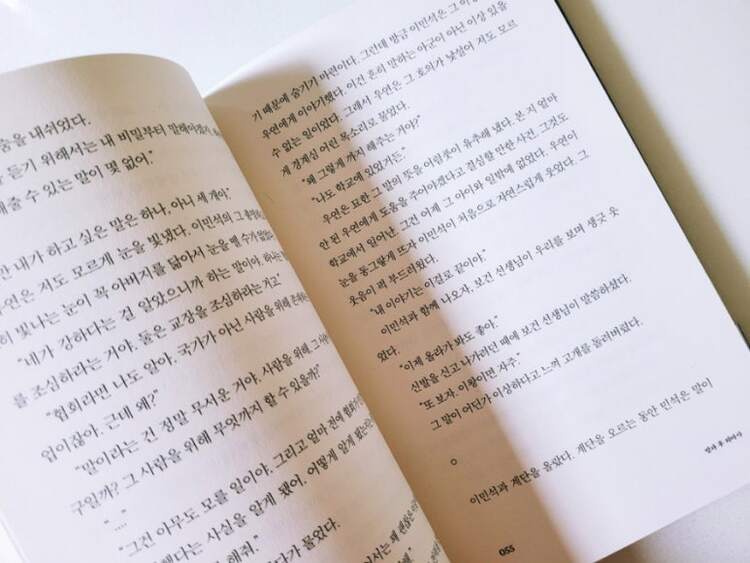 숨을 내쉬었다.
듣기 위해서는 내 비밀부터 말해야겠지.
해줄 수 있는 말이 몇 없어."
내가 하고 싶은 말은 하나, 아니 세 개야."
우연은 저도 모르게 눈을 빛냈다. 이민석의 그
히 빛나는 눈이 꼭 아버지를 닮아서 눈을 뗄 수가 없었
"내가 강하다는 걸 알았으니까 하는 말이야. 하나는
를 조심하라는 거야. 둘은 교장을 조심하라는 거고."
"협회라면 나도 알아. 국가가 아닌 사람을 위해
업이잖아. 근데 왜?"
"말이라는 건 정말 무서운 거야. 사람을 위해.
구일까? 그 사람을 위해 무엇까지 할 수 있을까?"
"……."
"그건 아무도 모를 일이야. 그리고 얼마 전에
했다는 사실을 알게 됐어. 어떻게 알게 됐는
해줘."
다가 물었다.
기 때문에 숨기기 마련이다. 그런데 방금 이민석은 그
우연에게 이야기했다. 이건 흔히 말하는 아군이 아닌 이상 있을
수 없는 일이었다. 그래서 우연은 그 호의가 낯설어 저도 모르
게 경계심 어린 목소리로 물었다.
"왜 그렇게까지 해주는 거야?"
"나도 학교에 있었거든."
우연은 묘한 그 말의 뜻을 어렴풋이 유추해 냈다. 본 지 얼마
안 된 우연에게 도움을 주어야겠다고 결심할 만한 사건. 그것도
학교에서 일어난. 그건 어제 그 아이와 일밖에 없었다. 우연이
눈을 동그랗게 뜨자 이민석이 처음으로 자연스럽게 웃었다. 그
웃음이 퍽 부드러웠다.
"내 이야기는 이걸로 끝이야."
이민석과 함께 나오자, 보건 선생님이 우리를 보며 생긋 웃
었다.
"이제 올라가 봐도 좋아."
신발을 신고 나가려던 때에 보건 선생님이 말씀하셨다.
"또 보자. 이왕이면 자주."
그 말이 어딘가 이상하다고 느껴 고개를 돌려버렸다.
○
이민석과 계단을 올랐다. 계단을 오르는 동안 민석은 말이
055